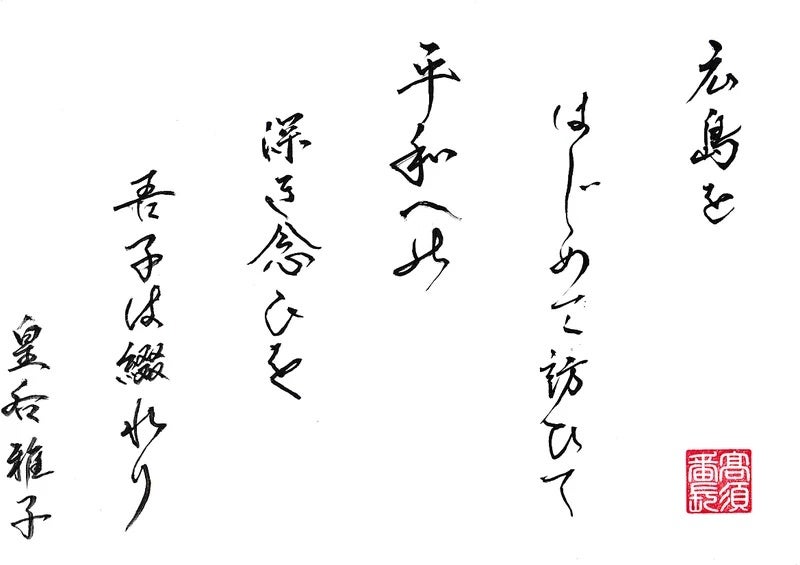 広島を
はじめて訪ひて
平和への
深き念ひを
吾子は綴れり
皇后雅子
髙須
番長